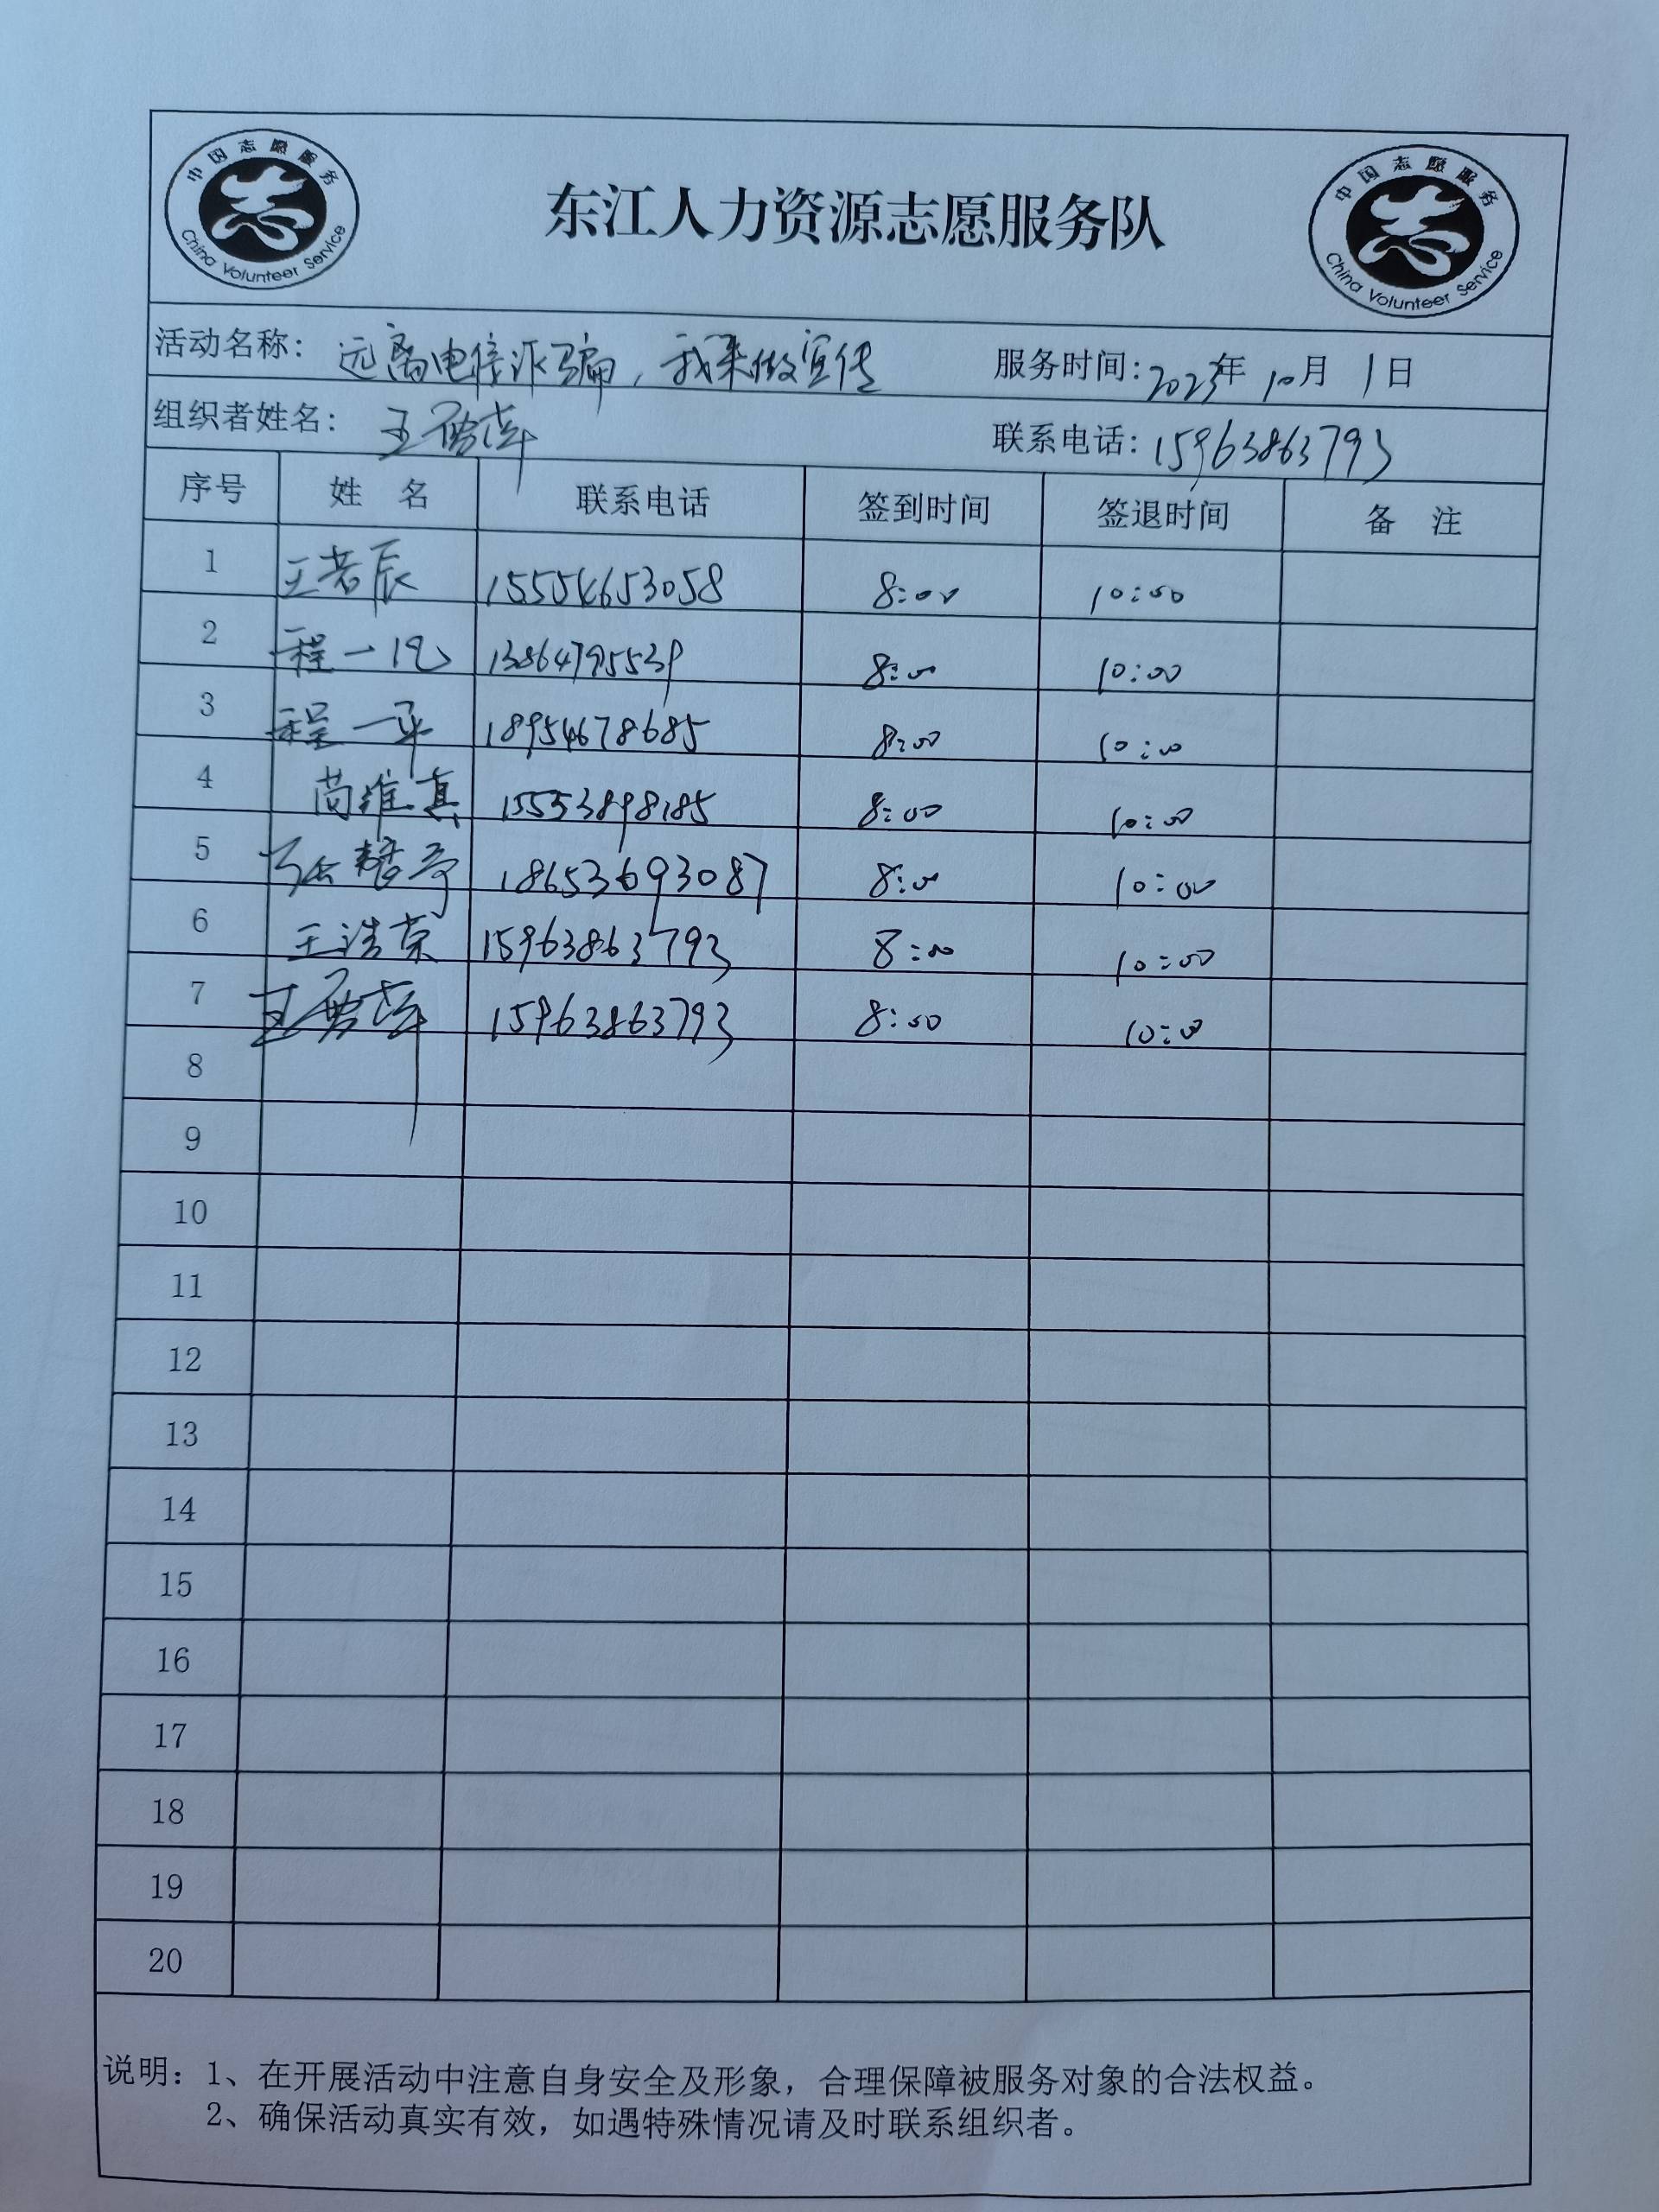 中国志愿服务
China Volunteer Service
东江人力资源志愿服务队
中国志愿服务
China Volunteer Service
活动名称：远离电信诈骗，我来做宣传 服务时间：2023年10月1日
组织者姓名：王 联系电话：15963863793
序号 姓 名 联系电话 签到时间 签退时间 备 注
1 王若辰 15554653058 8:00 10:00
2 程一 13864795539 8:00 10:00
3 程一平 18954678685 8:00 10:00
4 苘维真 15553898185 8:00 10:00
5 18653693087 8:00 10:00
6 王浩荣 15963863793 8:00 10:00
7 王 15963863793 8:00 10:00
8
9
10
11
12
13
14
15
16
17
18
19
20
说明：1、在开展活动中注意自身安全及形象，合理保障被服务对象的合法权益。
2、确保活动真实有效，如遇特殊情况请及时联系组织者。